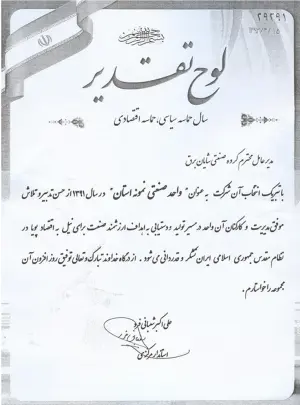 ۲۹۲۹۱
لوح تقدیر
سال حماسه سیاسی، حماسه اقتصادی
مدیرعامل محترم گروه صنعتی شایان برق
با تبریک انتخاب آن شرکت به عنوان "واحد صنعتی نمونه استان" در سال ۱۳۹۱ از حسن تدبیر و تلاش
موفق مدیریت و کارکنان آن واحد در مسیر تولید و دستیابی به اهداف ارزشمند صنعت برای نیل به اقتصاد پویا در
نظام مقدس جمهوری اسلامی ایران تشکر و قدردانی می شود. از درگاه خداوند تبارک و تعالی توفیق روز افزون آن
مجموعه را خواستارم.
علی اکبر شعبانی فرد
استاندار مرکزی